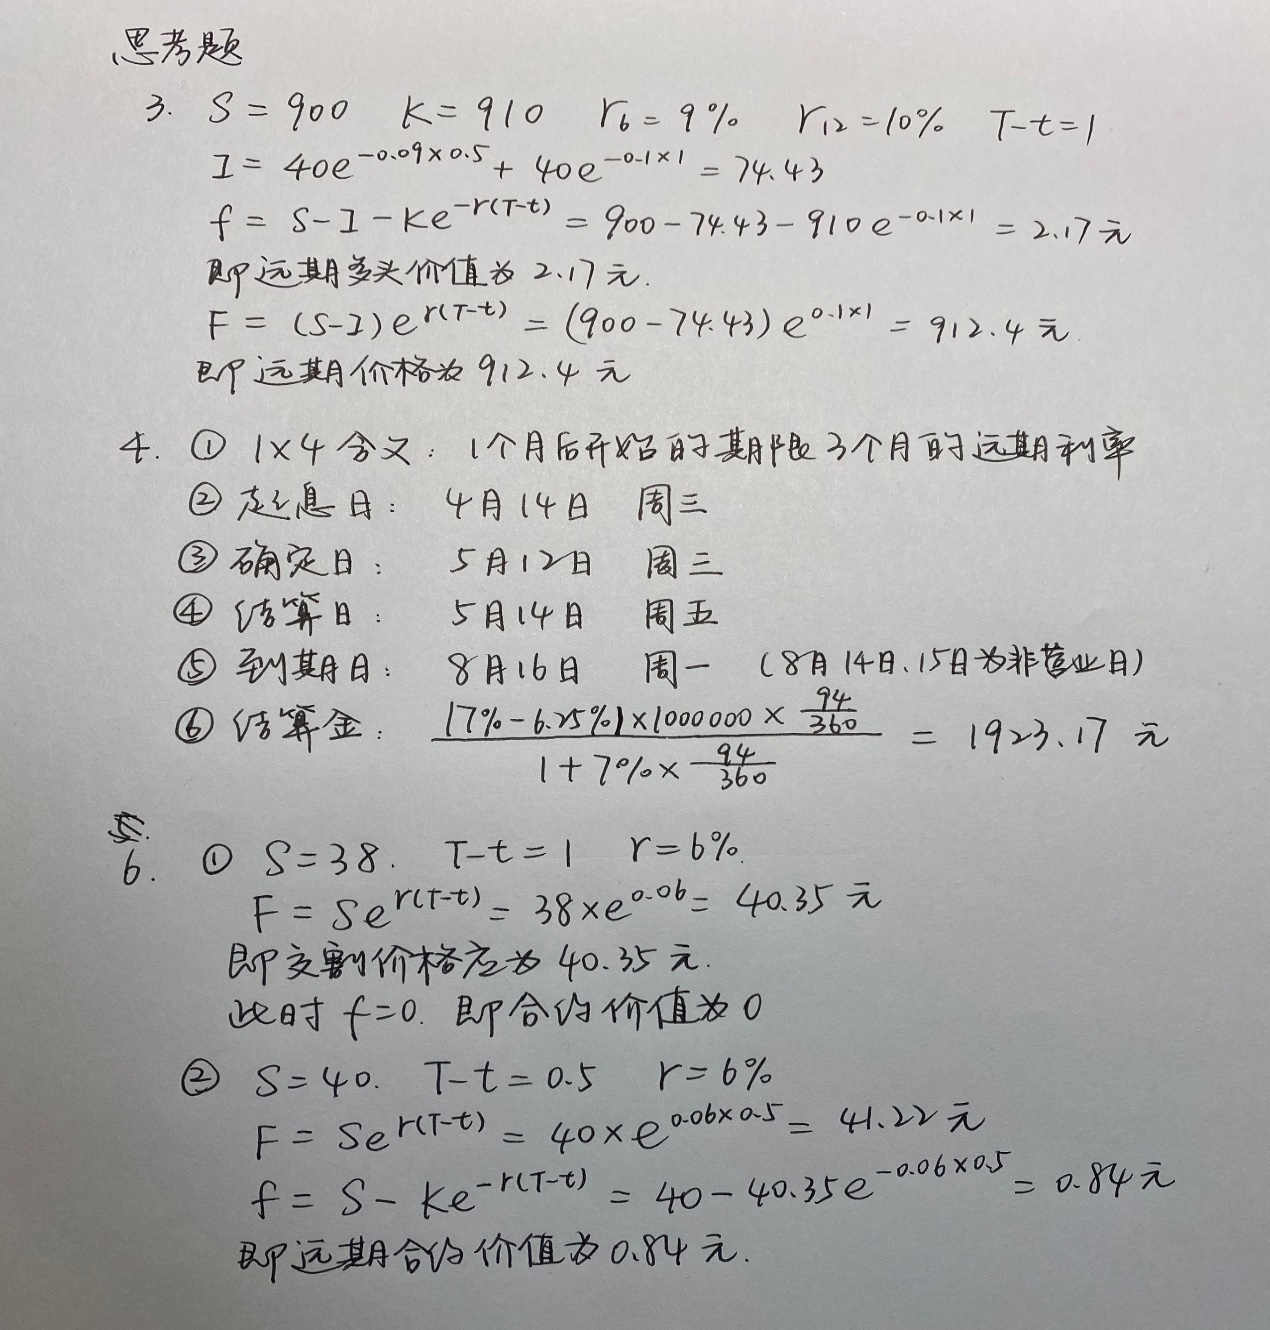 思考题
3. S=900 K=910 r₆=9% r₁₂=10% T-t=1
I=40e^{-0.09×0.5}+40e^{-0.1×1}=74.43
f=S-I-Ke^{-r(T-t)}=900-74.43-910e^{-0.1×1}=2.17元
即远期多头价值为2.17元.
F=(S-I)e^{r(T-t)}=(900-74.43)e^{0.1×1}=912.4元.
即远期价格为912.4元
4. ①1×4含义: 1个月后开始的期限3个月的远期利率
②起息日: 4月14日 周三
③确定日: 5月12日 周三
④结算日: 5月14日 周五
⑤到期日: 8月16日 周一 (8月14日、15日为非营业日)
⑥结算金: \frac{|7%-6.25%|×1000000×\frac{94}{360}}{1+7%×\frac{94}{360}} = 1923.17元
6. ① S=38. T-t=1 r=6%.
F=Se^{r(T-t)}=38×e^{0.06}=40.35元
即交割价格应为40.35元.
此时f=0. 即合约价值为0
② S=40. T-t=0.5 r=6%
F=Se^{r(T-t)}=40×e^{0.06×0.5}=41.22元
f=S-Ke^{-r(T-t)}=40-40.35e^{-0.06×0.5}=0.84元
即远期合约价值为0.84元.